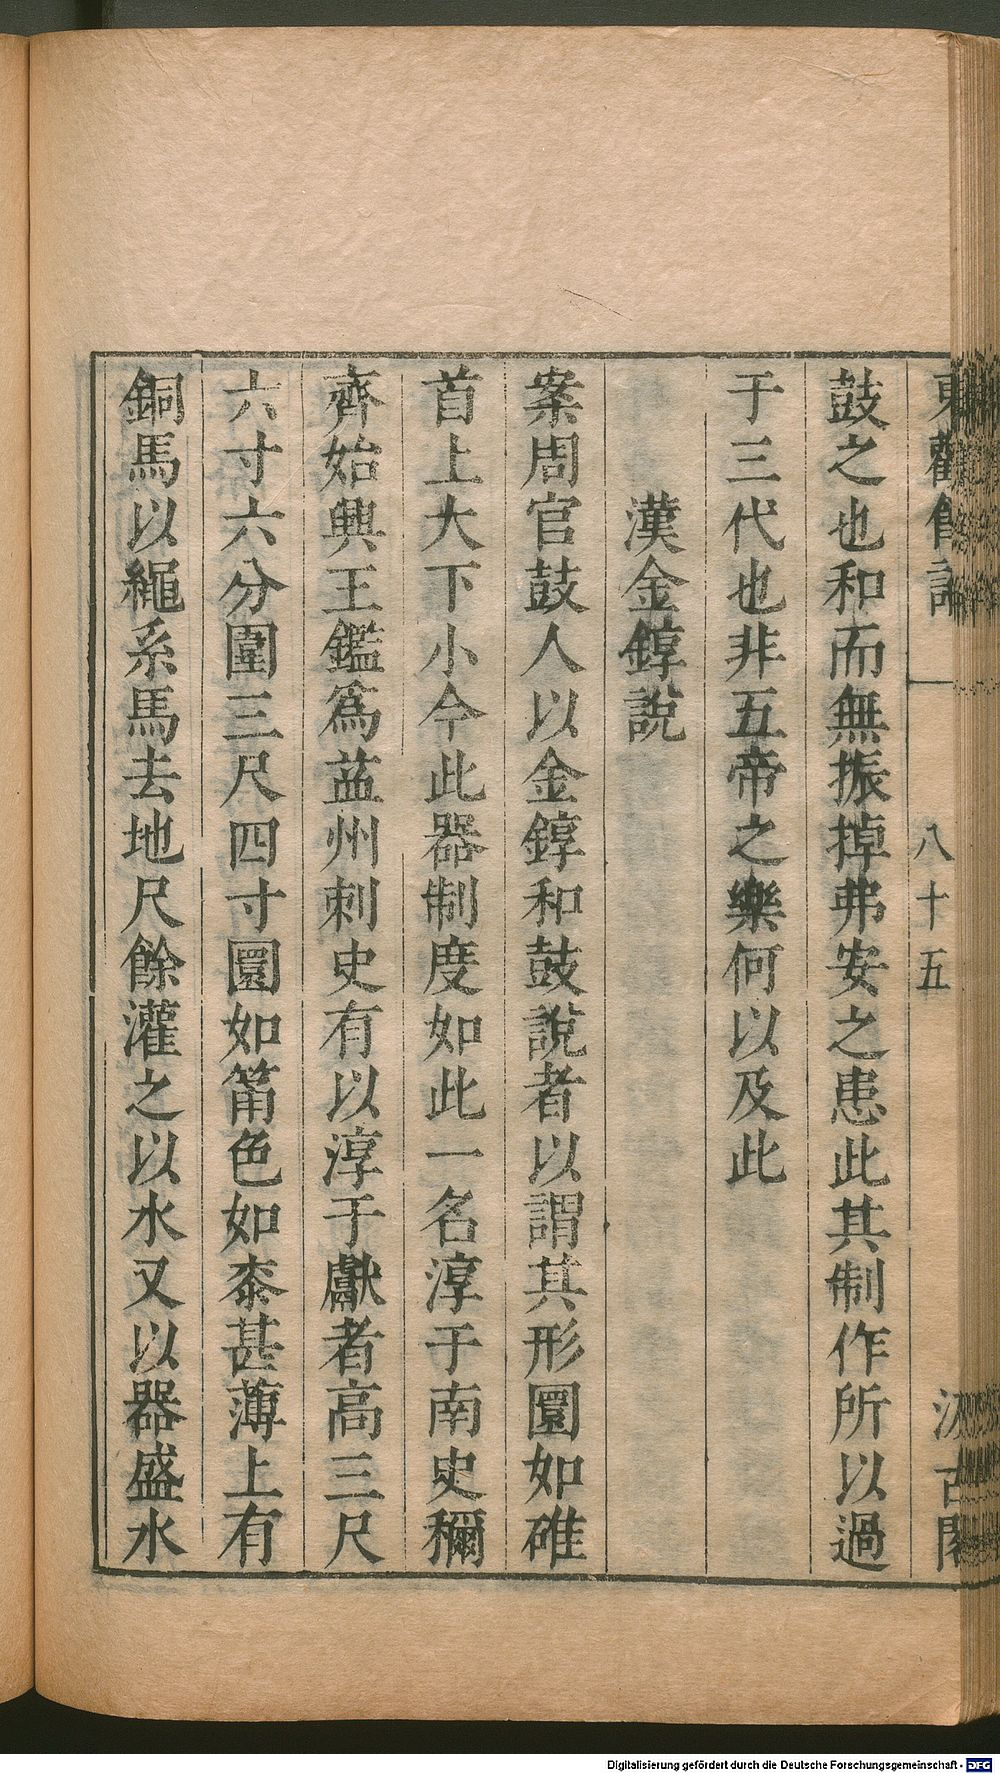 東觀餘論
八十五
汲古閣
鼓之也和而無振掉弗安之患此其制作所以過
于三代也非五帝之樂何以及此
漢金錞說
案周官鼓人以金錞和鼓說者以謂其形圜如碓
首上大下小今此器制度如此一名淳于南史穪
齊始興王鑑爲益州刺史有以淳于獻者高三尺
六寸六分圍三尺四寸圜如筩色如桼甚薄上有
銅馬以繩系馬去地尺餘灌之以水又以器盛水
Digitalisierung gefördert durch die Deutsche Forschungsgemeinschaft - DFG